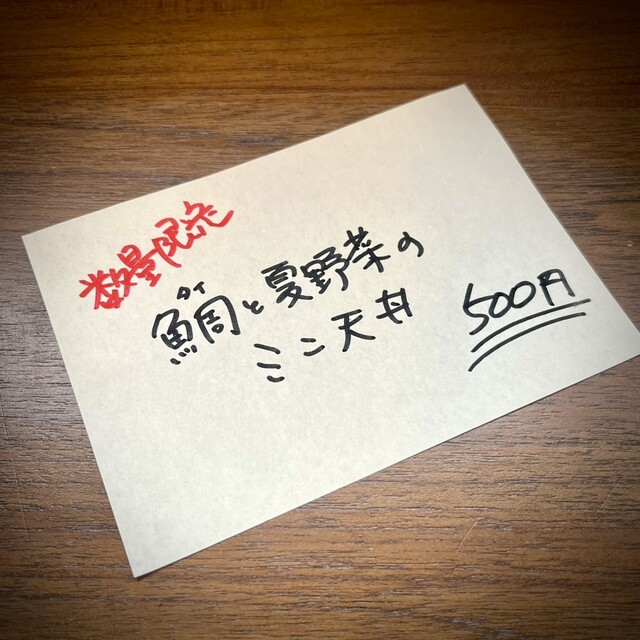 数量限定
タイ
鯛と夏野菜の
ミニ天丼
500円